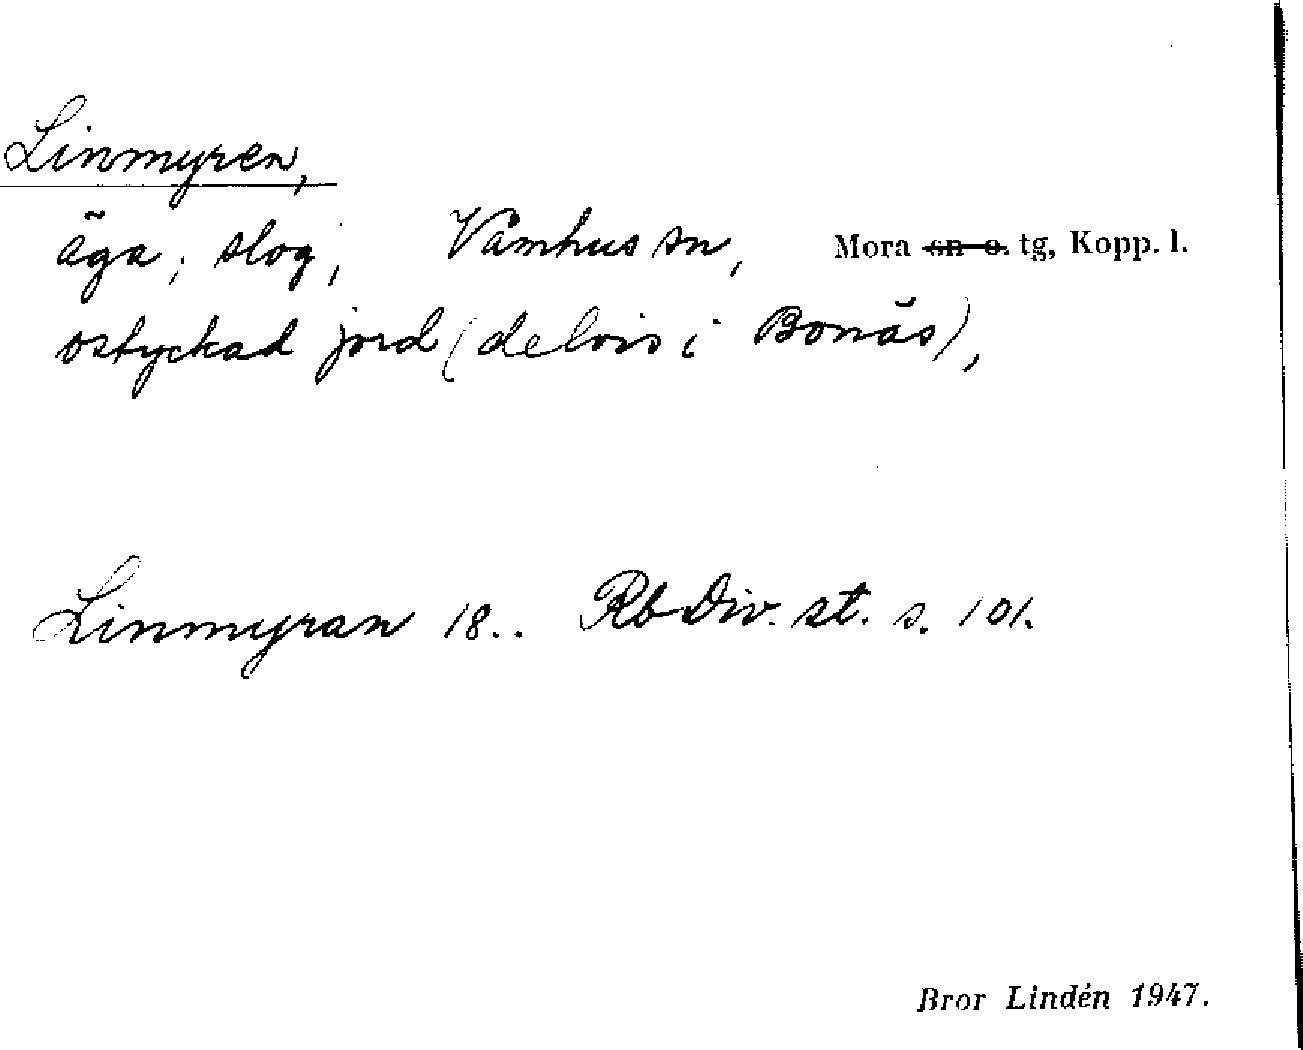 Linmyren,
äga; slog; Våmhus sn, Mora sn o. tg, Kopp. l.
ostyckad jord (delvis i Bonäs),
Linmyran 18.. Rb Div. st. s. 101.
Bror Lindén 1947.